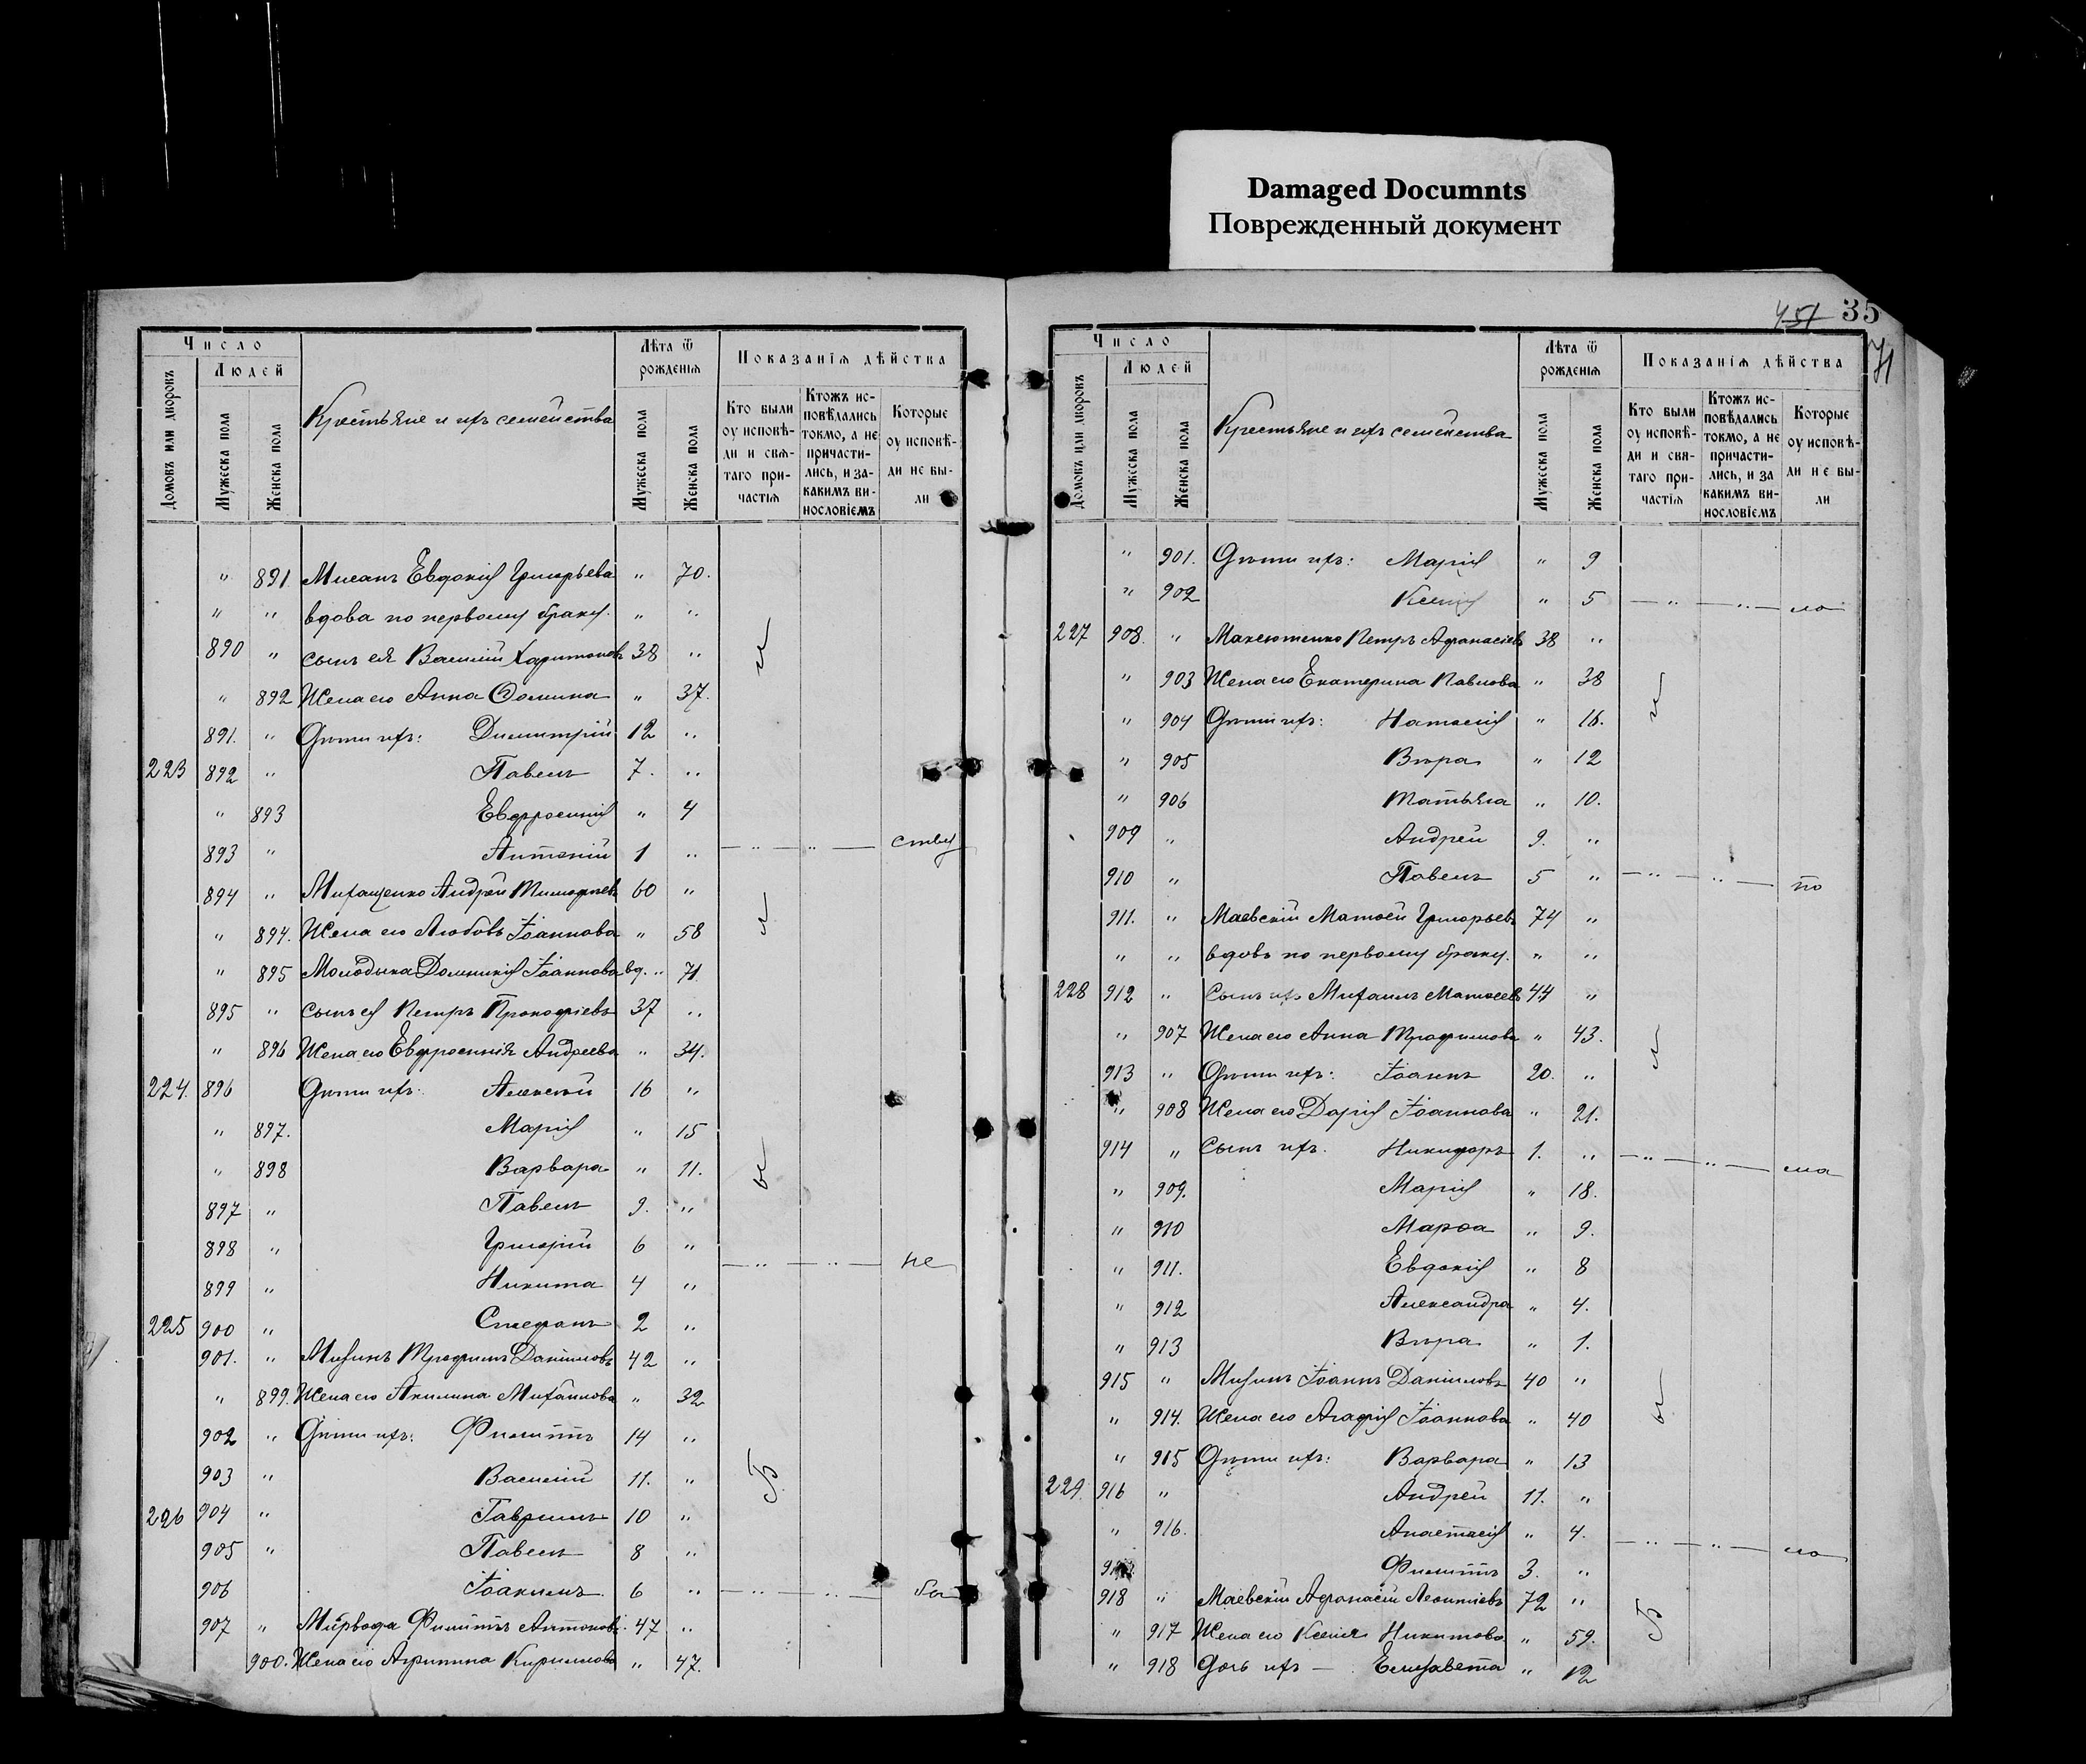 Damaged Documnts
Поврежденный документ
451 35
71
Число
Людей
Домовъ или дворовъ
Мужеска пола
Женска пола
Крестьяне и ихъ семейства
Лѣта ѿ рожденїѧ
Мужеска пола
Женска пола
Показанїѧ дѣйства
Кто были оу исповѣди и свѧтаго причастїѧ
Ктожъ исповѣдались токмо, а не причастились, и за какимъ винословїемъ
Которые оу исповѣди не были
" 891. Евдокія Григорьева " 70.
" " вдова по первому браку. " "
890 " сынъ ея Василій Харитоновъ 38 "
" 892 Жена его Анна Ѳомина " 37.
891. " Дѣти ихъ: Димитрій 12 "
223 892 " Павелъ 7. "
" 893 Евфросинія " 4
893 " Антоній 1 " — " — " — ству
894 " Михащенко Андрей Тимофѣевъ 60 "
" 894. Жена его Любовь Іоаннова " 58
" 895 Молодыка Домникія Іоаннова вд. " 71
895 " сынъ ея Петръ Прокофіевъ 37 "
" 896 Жена его Евфросинія Андреева " 34.
224. 896 Дѣти ихъ: Алексѣй 16 "
" 897. Марія " 15
" 898 Варвара " 11.
897 " Павелъ 9. "
898 " Григорій 6 " — " — " — не
899 " Никита 4 "
225 900 " Стефанъ 2 "
901. " Мизинъ Трофимъ Даніиловъ 42 "
" 899. Жена его Акилина Михайлова " 32
902 " Дѣти ихъ: Филиппъ 14 "
903 " Василій 11. "
226 904 " Гавріилъ 10 "
905 " Павелъ 8 "
906 Іоакимъ 6 " — " — " — бы
907 " Филиппъ Антоновъ. 47 "
900. Жена его Агрипина Кириллова " 47.
Число
Людей
Домовъ или дворовъ
Мужеска пола
Женска пола
Крестьяне и ихъ семейства
Лѣта ѿ рожденїѧ
Мужеска пола
Женска пола
Показанїѧ дѣйства
Кто были оу исповѣди и свѧтаго причастїѧ
Ктожъ исповѣдались токмо, а не причастились, и за какимъ винословїемъ
Которые оу исповѣди не были
" 901. Дѣти ихъ: Марія " 9
" 902 Ксенія " 5 — " — " — ло
227 908. " Максютенко Петръ Афанасіевъ 38 "
" 903 Жена его Екатерина Павлова " 38
" 904 Дѣти ихъ: Наталія " 16.
" 905 Вѣра " 12
" 906 Татьяна " 10.
909 " Андрей 9. "
910 " Павелъ 5 " — " — " — по
911. " Маевскій Матѳей Григорьевъ 74 "
" " вдовъ по первому браку. " "
228 912 " Сынъ его Михаилъ Матѳеевъ 44 "
" 907 Жена его Анна Трофимова " 43.
913 " Дѣти ихъ: Іоаннъ 20. "
" 908 Жена его Дарія Іоаннова " 21.
914 " Сынъ ихъ. Никифоръ 1. " — " — " —
" 909. Марія " 18.
" 910 Марѳа " 9.
" 911. Евдокія " 8
" 912 Александра " 4.
" 913 Вѣра " 1.
915 " Мизинъ Іоаннъ Даніиловъ 40 "
" 914. Жена его Агафія Іоаннова " 40
" 915 Дѣти ихъ: Варвара " 13
229 916 " Андрей 11. "
" 916. Анастасія " 4. — " — " — ло
Филиппъ 3. "
918 " Маевскій Афанасій Леонтіевъ 72 "
" 917 Жена его Ксенія Никитова " 59.
" 918 Дочь ихъ — Елизавета " 12